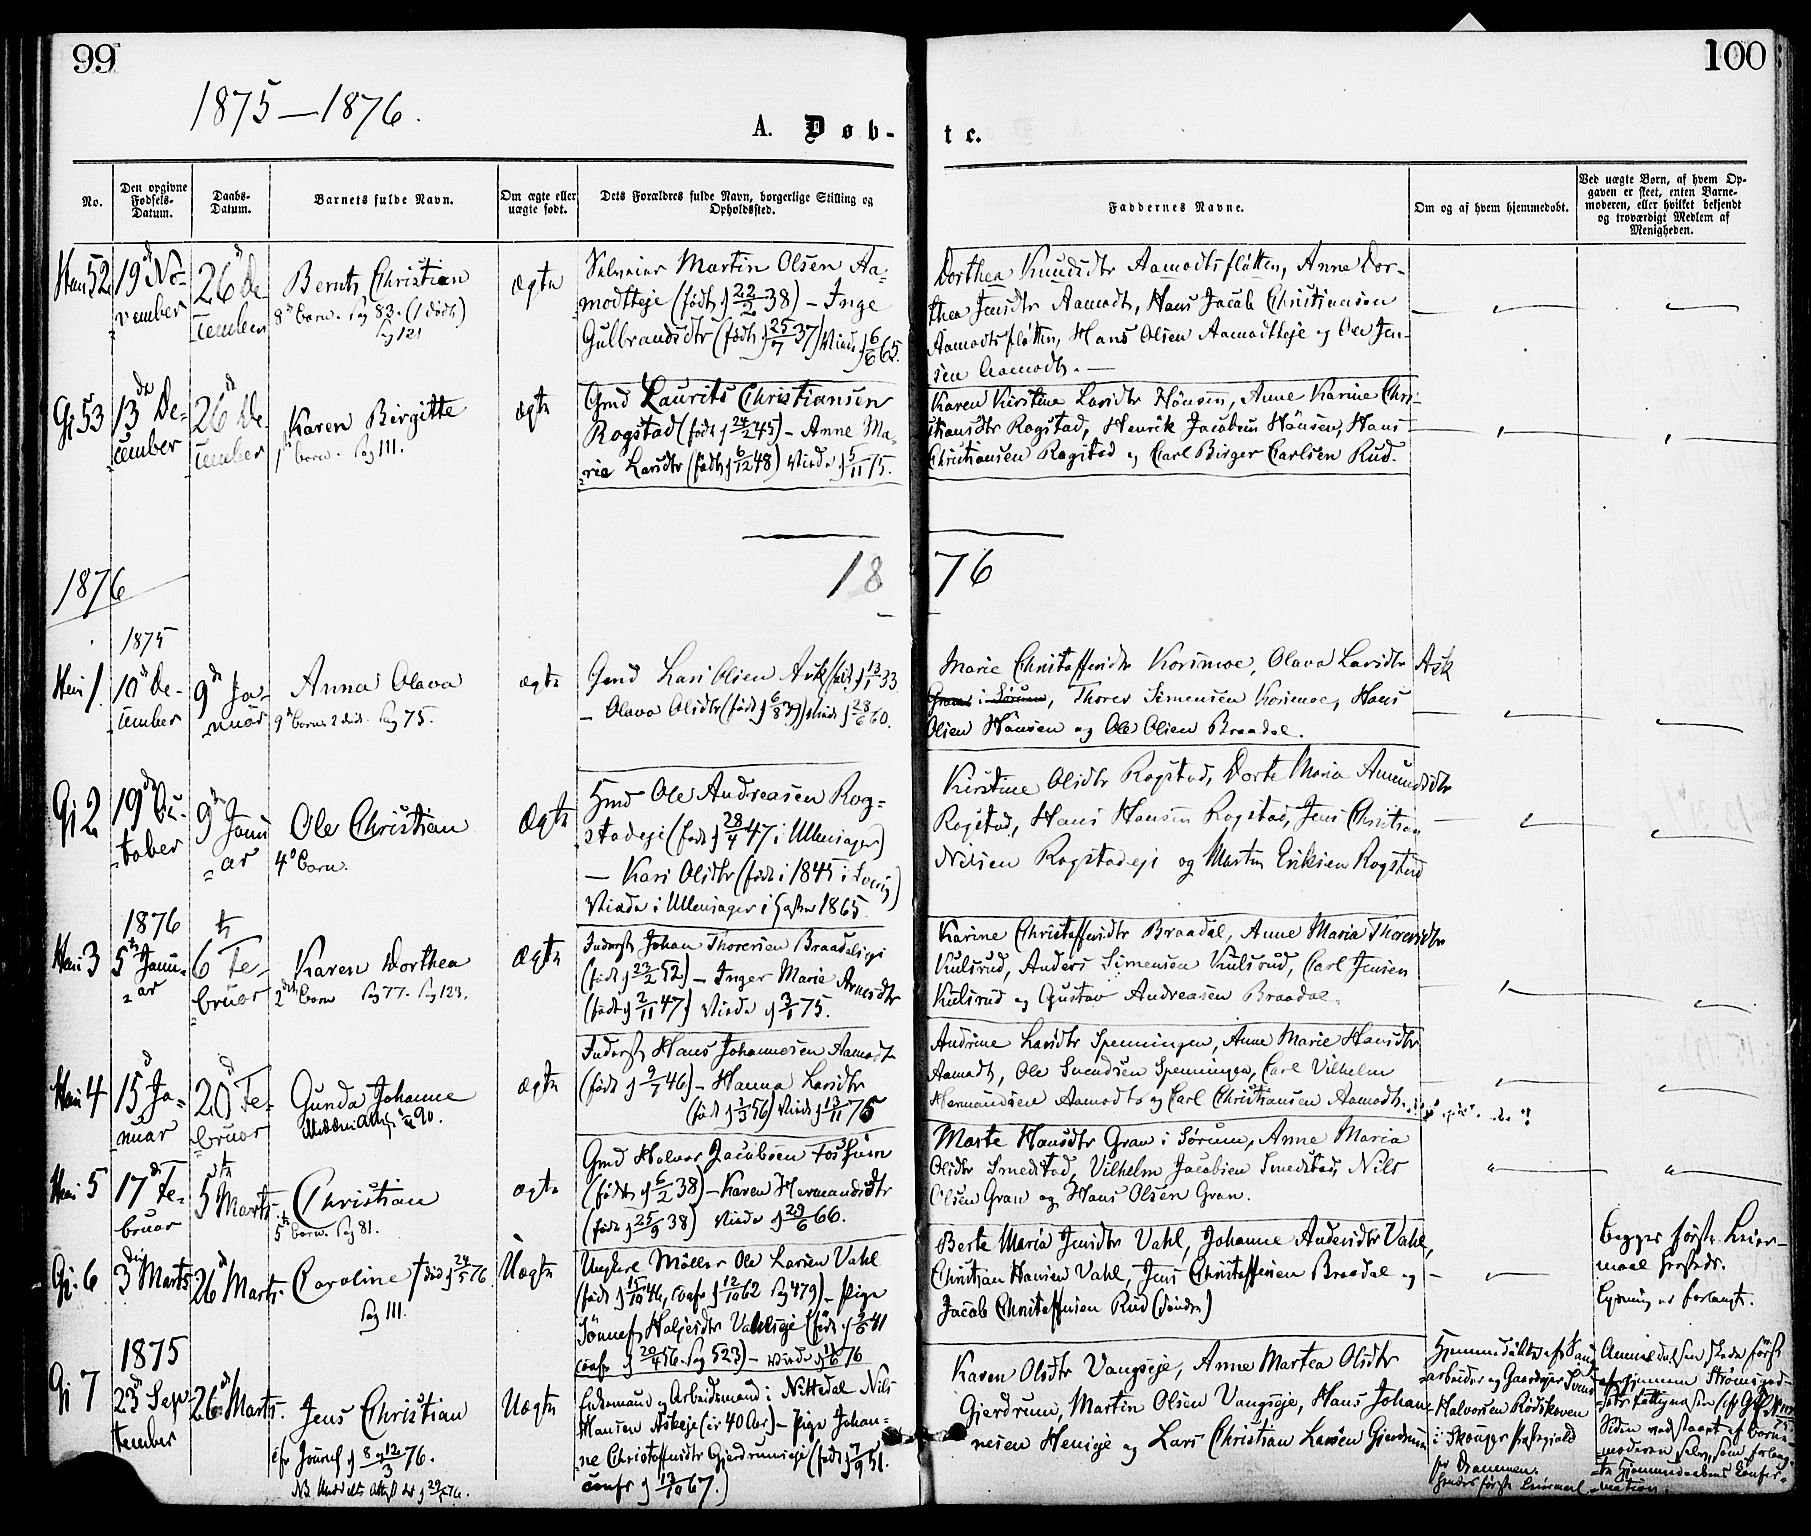 99
100
1875—1876.
A. Døb-
te.
No.
Den opgivne Fødsels-Datum.
Daabs-Datum.
Barnets fulde Navn.
Om ægte eller uægte født.
Dets Forældres fulde Navn, borgerlige Stilling og Opholdssted.
Faddernes Navne.
Om og af hvem hjemmedøbt.
Ved uægte Børn, af hvem Op-
gaven er skeet, enten Barne-
moderen, eller hvilket bekjendt
og troværdigt Medlem af
Menigheden.
52
19d No-
vember
26d De-
cember
Bernt Christian
8d Barn. Pag 83. (1 død)
Pag 121
ægte
Selveier Martin Olsen Aa-
modteje (født 22/2 38) – Inge
Gulbrandsdtr (født 25/7 37) Viede 6/6 65.
Dorthea Knudsdtr Aamodtsfløtten, Anne Dor-
thea Jensdtr Aamodt, Hans Jacob Christiansen
Aamodtsfløtten, Hans Olsen Aamodteje og Ole Jen-
sen Aamodt. —
Gj 53
13de De-
cember
26d De-
cember
Karen Birgitte
1 Barn. Pag 111.
ægte
Gmd Laurits Christiansen
Rogstad (født 24/2 45) – Anne Ma-
rie Larsdtr (født 6/12 48) Viede 5/11 75.
Karen Kirstine Larsdtr Hønsen, Anne Karine Chri-
stiansdtr Rogstad, Henrik Jacobsen Hønsen, Hans
Christiansen Rogstad og Carl Birger Carlsen Rud.
1876
1876
1875
1
10d De-
cember
9de Ja-
nuar
Anna Olava
9d Barn 2 død. Pag 75.
ægte
Gmd Lars Olsen Ask (født 13/1 33
– Olava Olsdtr (født 6/8 39) Viede 28/6 60.
Marie Christoffersdtr Korsmoe, Olava Larsdtr Ask
i Sørum, Thorer Simensen Korsmoe, Hans
Olsen Hønsen og Ole Olsen Braadal.
Gj 2
19de Oc-
tober
9de Janu-
ar
Ole Christian
4d Barn.
Ægte
Hmd Ole Andreasen Rog-
stadeje (født 28/4 47 i Ullensager)
— Kari Olsdtr (født i 1845 i
Viede i Ullensager i Høsten 1865.
Kirstine Olsdtr Rogstad, Dorte Maria Amundsdtr
Rogstad, Hans Hansen Rogstad, Jens Christian
Nilsen Rogstadeje og Martin Eriksen Rogstad
1876
3
5te Janu-
ar
6te Fe-
bruar
Karen Dorthea
2det Barn Pag 77. Pag 123.
ægte
Inderst Johan Thoresen Braadaleje
(født 23/2 52) – Inger Marie Arnesdtr
(født 2/11 47) Viede 3/1 75.
Karine Christoffersdtr Braadal, Anne Maria Thoresdtr
Kulsrud, Anders Simensen Kulsrud, Carl Jensen
Kulsrud og Gustav Andreasen Braadal.
4
15d Ja-
nuar
20d Fe-
bruar
Gunda Johanne
90.
ægte
Inderst Hans Johannesen Aamodt
(født 9/7 46) – Hanna Larsdtr
(født 1/3 56) Viede 13/11 75
Andrine Larsdtr Spenningen, Anne Marie Hansdtr
Aamodt, Ole Svendsen Spenningen, Carl Vilhelm
Hermansen Aamodt og Carl Christiansen Aamodt.
5
17d Fe-
bruar
5te Marts
Christian
5te Barn. Pag 81.
ægte
Gmd Halvor Jacobsen Fosshum
(født 6/2 38) – Karen Hermandsdtr
(født 25/9 38) Viede 29/6 66.
Marte Hansdtr Gran i Sørum, Anne Maria
Olsdtr Smedstad, Vilhelm Jacobsen Smedstad, Nils
Olsen Gran og Hans Olsen Gran.
Gj. 6
3die Marts
26d Marts
Caroline † død 24/5 76
Pag 111.
Uægte
Ungkarl Møller Ole Larsen Vahl
(født 15/10 46, conf 12/10 62 Pag 479) – Pige
Jønnet Haljesdtr Vahlseje (født 2/6 41
conf 20/4 56. Pag 523) –
Berte Maria Jensdtr Vahl, Johanne Andersdtr Vahl,
Christian Hansen Vahl, Jens Christoffersen Braadal og
Jacob Christoffersen Rud (søndre)
Begges første Leier-
maal
Lysning er forlangt.
1875
Gj 7
23d Sep-
tember
26d Marts.
Jens Christian
8 og 12/3 76.
Uægte
Enkemand og Arbeidsmand i Nittedal Nils
Hansen Askeje (er 40 Aar) – Pige Johan-
ne Christoffersdtr Gjerdrumseje (født 7/9 51.
confr 13/10 67.)
Karen Olsdtr Vangseje, Anne Martea Olsdtr
Gjerdrum, Martin Olsen Vangseje, Hans Johan-
nesen Henseje og Lars Christian Larsen Gjerdrum
Hjemmedøbt af
arbeider og Gaardeier
Halvorsen Rødskoven
i Skouger Præstegjæld
pr Drammen.
Anmeldelsen skede først
gjennem Strømsgod-
Siden modtaget af Barne-
moderen selv, som forlang-